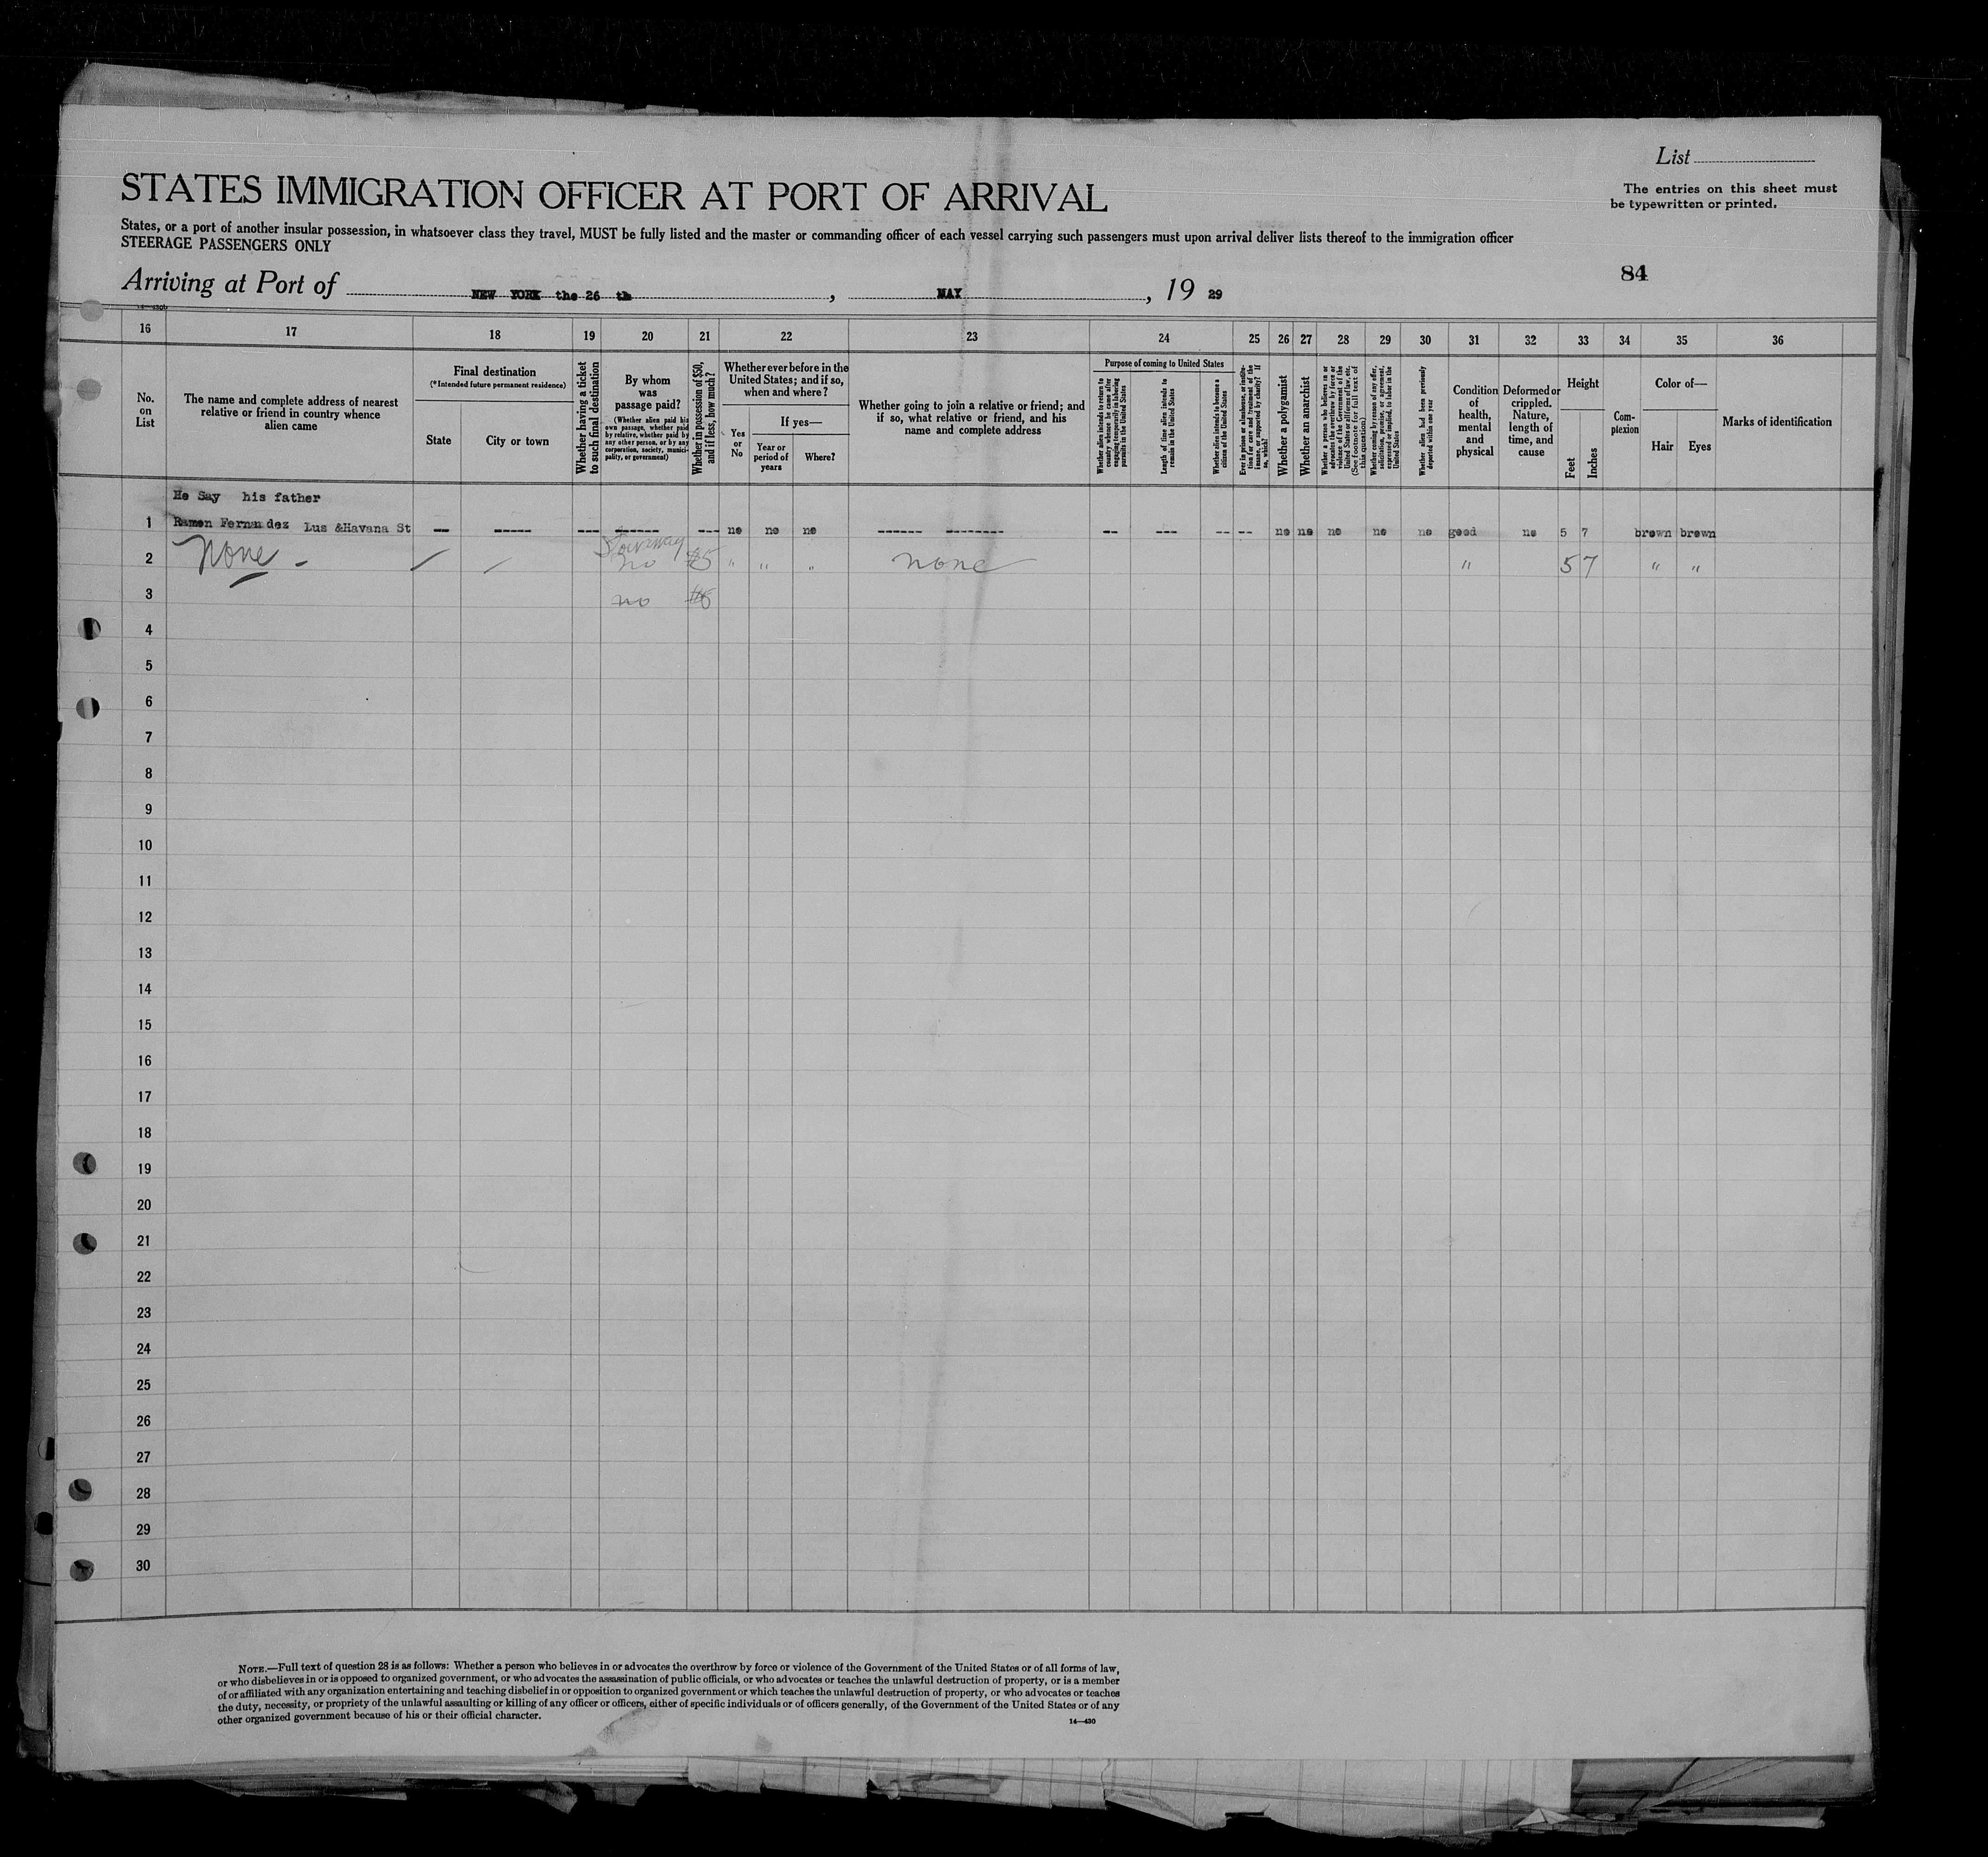 List
STATES IMMIGRATION OFFICER AT PORT OF ARRIVAL
The entries on this sheet must
be typewritten or printed.
States, or a port of another insular possession, in whatsoever class they travel, MUST be fully listed and the master or commanding officer of each vessel carrying such passengers must upon arrival deliver lists thereof to the immigration officer
STEERAGE PASSENGERS ONLY
84
Arriving at Port of NEW YORK the 26 th, MAY, 19 29
16 17 18 19 20 21 22 23 24 25 26 27 28 29 30 31 32 33 34 35 36
No.
on
List
The name and complete address of nearest
relative or friend in country whence
alien came
Final destination
(*Intended future permanent residence)
State
City or town
Whether having a ticket
to such final destination
By whom
was
passage paid?
(Whether alien paid his
own passage, whether paid
by relative, whether paid by
any other person, or by any
corporation, society, munici-
pality, or government)
Whether in possession of $50,
and if less, how much?
Whether ever before in the
United States; and if so,
when and where?
Yes
or
No
If yes—
Year or
period of
years
Where?
Whether going to join a relative or friend; and
if so, what relative or friend, and his
name and complete address
Purpose of coming to United States
Whether alien intends to return to
country whence he came after
engaging temporarily in laboring
pursuits in the United States
Length of time alien intends to
remain in the United States
Whether alien intends to become a
citizen of the United States
Ever in prison or almshouse, or institu-
tion for care and treatment of the
insane, or supported by charity? If
so, which?
Whether a polygamist
Whether an anarchist
Whether a person who believes in or
advocates the overthrow by force or
violence of the Government of the
United States or all forms of law, etc.
(See footnote for full text of
this question)
Whether coming by reason of any offer,
solicitation, promise, or agreement,
expressed or implied, to labor in the
United States
Whether alien had been previously
deported within one year
Condition
of
health,
mental
and
physical
Deformed or
crippled.
Nature,
length of
time, and
cause
Height
Feet
Inches
Com-
plexion
Color of—
Hair
Eyes
Marks of identification
He Say his father
1 Ramon Fernandez Lus &Havana St -- ----- --- ------ --- no no no ------ -------- -- --- -- -- no no no no no good no 5 7 brown brown
2 None - / / no $5 " " " none " 5 7 " "
3 no
4
5
6
7
8
9
10
11
12
13
14
15
16
17
18
19
20
21
22
23
24
25
26
27
28
29
30
NOTE.—Full text of question 28 is as follows: Whether a person who believes in or advocates the overthrow by force or violence of the Government of the United States or of all forms of law,
or who disbelieves in or is opposed to organized government, or who advocates the assassination of public officials, or who advocates or teaches the unlawful destruction of property, or is a member
of or affiliated with any organization entertaining and teaching disbelief in or opposition to organized government or which teaches the unlawful destruction of property, or who advocates or teaches
the duty, necessity, or propriety of the unlawful assaulting or killing of any officer or officers, either of specific individuals or of officers generally, of the Government of the United States or of any
other organized government because of his or their official character.
14—430